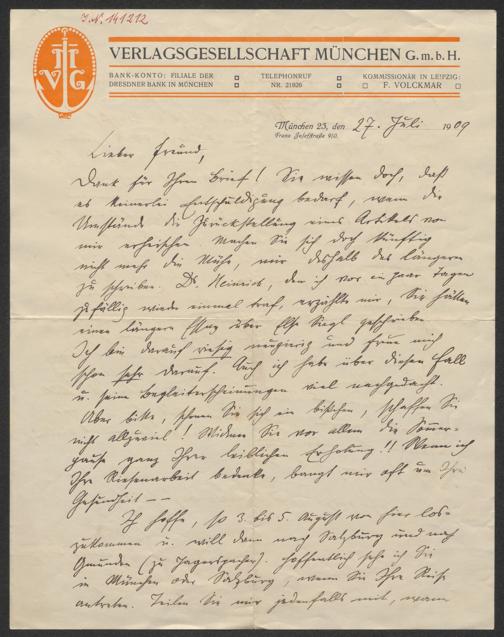 J.N. 141212
VERLAGSGESELLSCHAFT MÜNCHEN G. m. b. H.
VGM
BANK-KONTO: FILIALE DER
DRESDNER BANK IN MÜNCHEN
TELEPHONRUF
NR. 21926
KOMMISSIONÄR IN LEIPZIG:
F. VOLCKMAR
München 23, den 27. Juli 1909
Franz Josefstraße 9/0.
Lieber Freund,
Dank für Ihren Brief! Sie wissen doch, daß
es keinerlei Entschuldigung bedarf, wenn die
Umstände die Zurückstellung eines Artikels von
mir erheischen. Machen Sie sich doch künftig
nicht mehr die Mühe, mir deshalb des längeren
zu schreiben. Dr. Heinrich, den ich vor ein paar Tagen
zufällig wieder einmal traf, erzählte mir, Sie hätten
einen längern Essay über Else Siegl geschrieben.
Ich bin darauf riesig neugierig und freue mich
schon sehr darauf. Auch ich habe über diesen Fall
u. seine Begleiterscheinungen viel nachgedacht.
Aber bitte, schonen Sie sich ein bißchen, schaffen Sie
nicht allzuviel! Widmen Sie vor allem die Sommer-
pause ganz Ihrer leiblichen Erholung!! Wenn ich
Ihre Riesenarbeit bedenke, bangt mir oft um Ihre
Gesundheit – –
Ich hoffe, so 3. bis 5. August von hier los-
zukommen u. will dann nach Salzburg und nach
Gmunden (zu Jagerspacher). Hoffentlich sehe ich Sie
in München oder Salzburg, wenn Sie Ihre Reise
antreten. Teilen Sie mir jedenfalls mit, wann